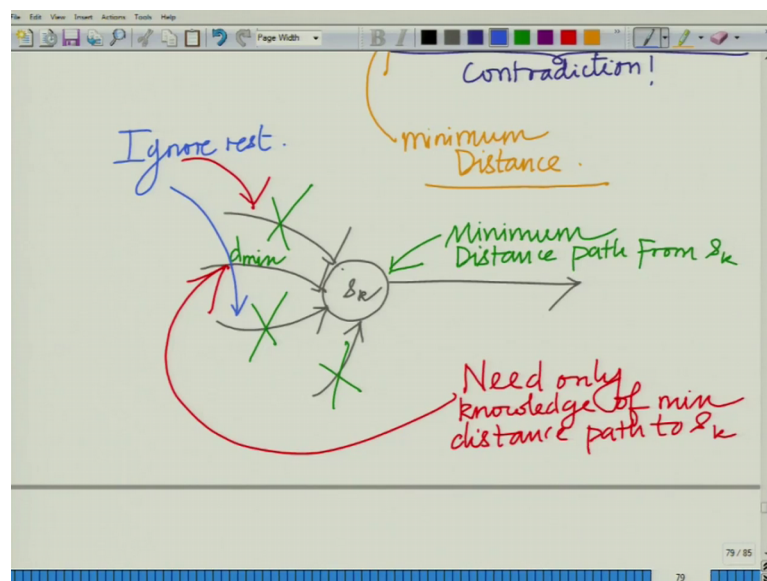 File Edit View Insert Actions Tools Help
Page Width
B I
Contradiction!
minimum
Distance.
Ignore rest.
dmin
Minimum
Distance path from sk
sk
Need only
knowledge of min
distance path to sk
79 / 85
79